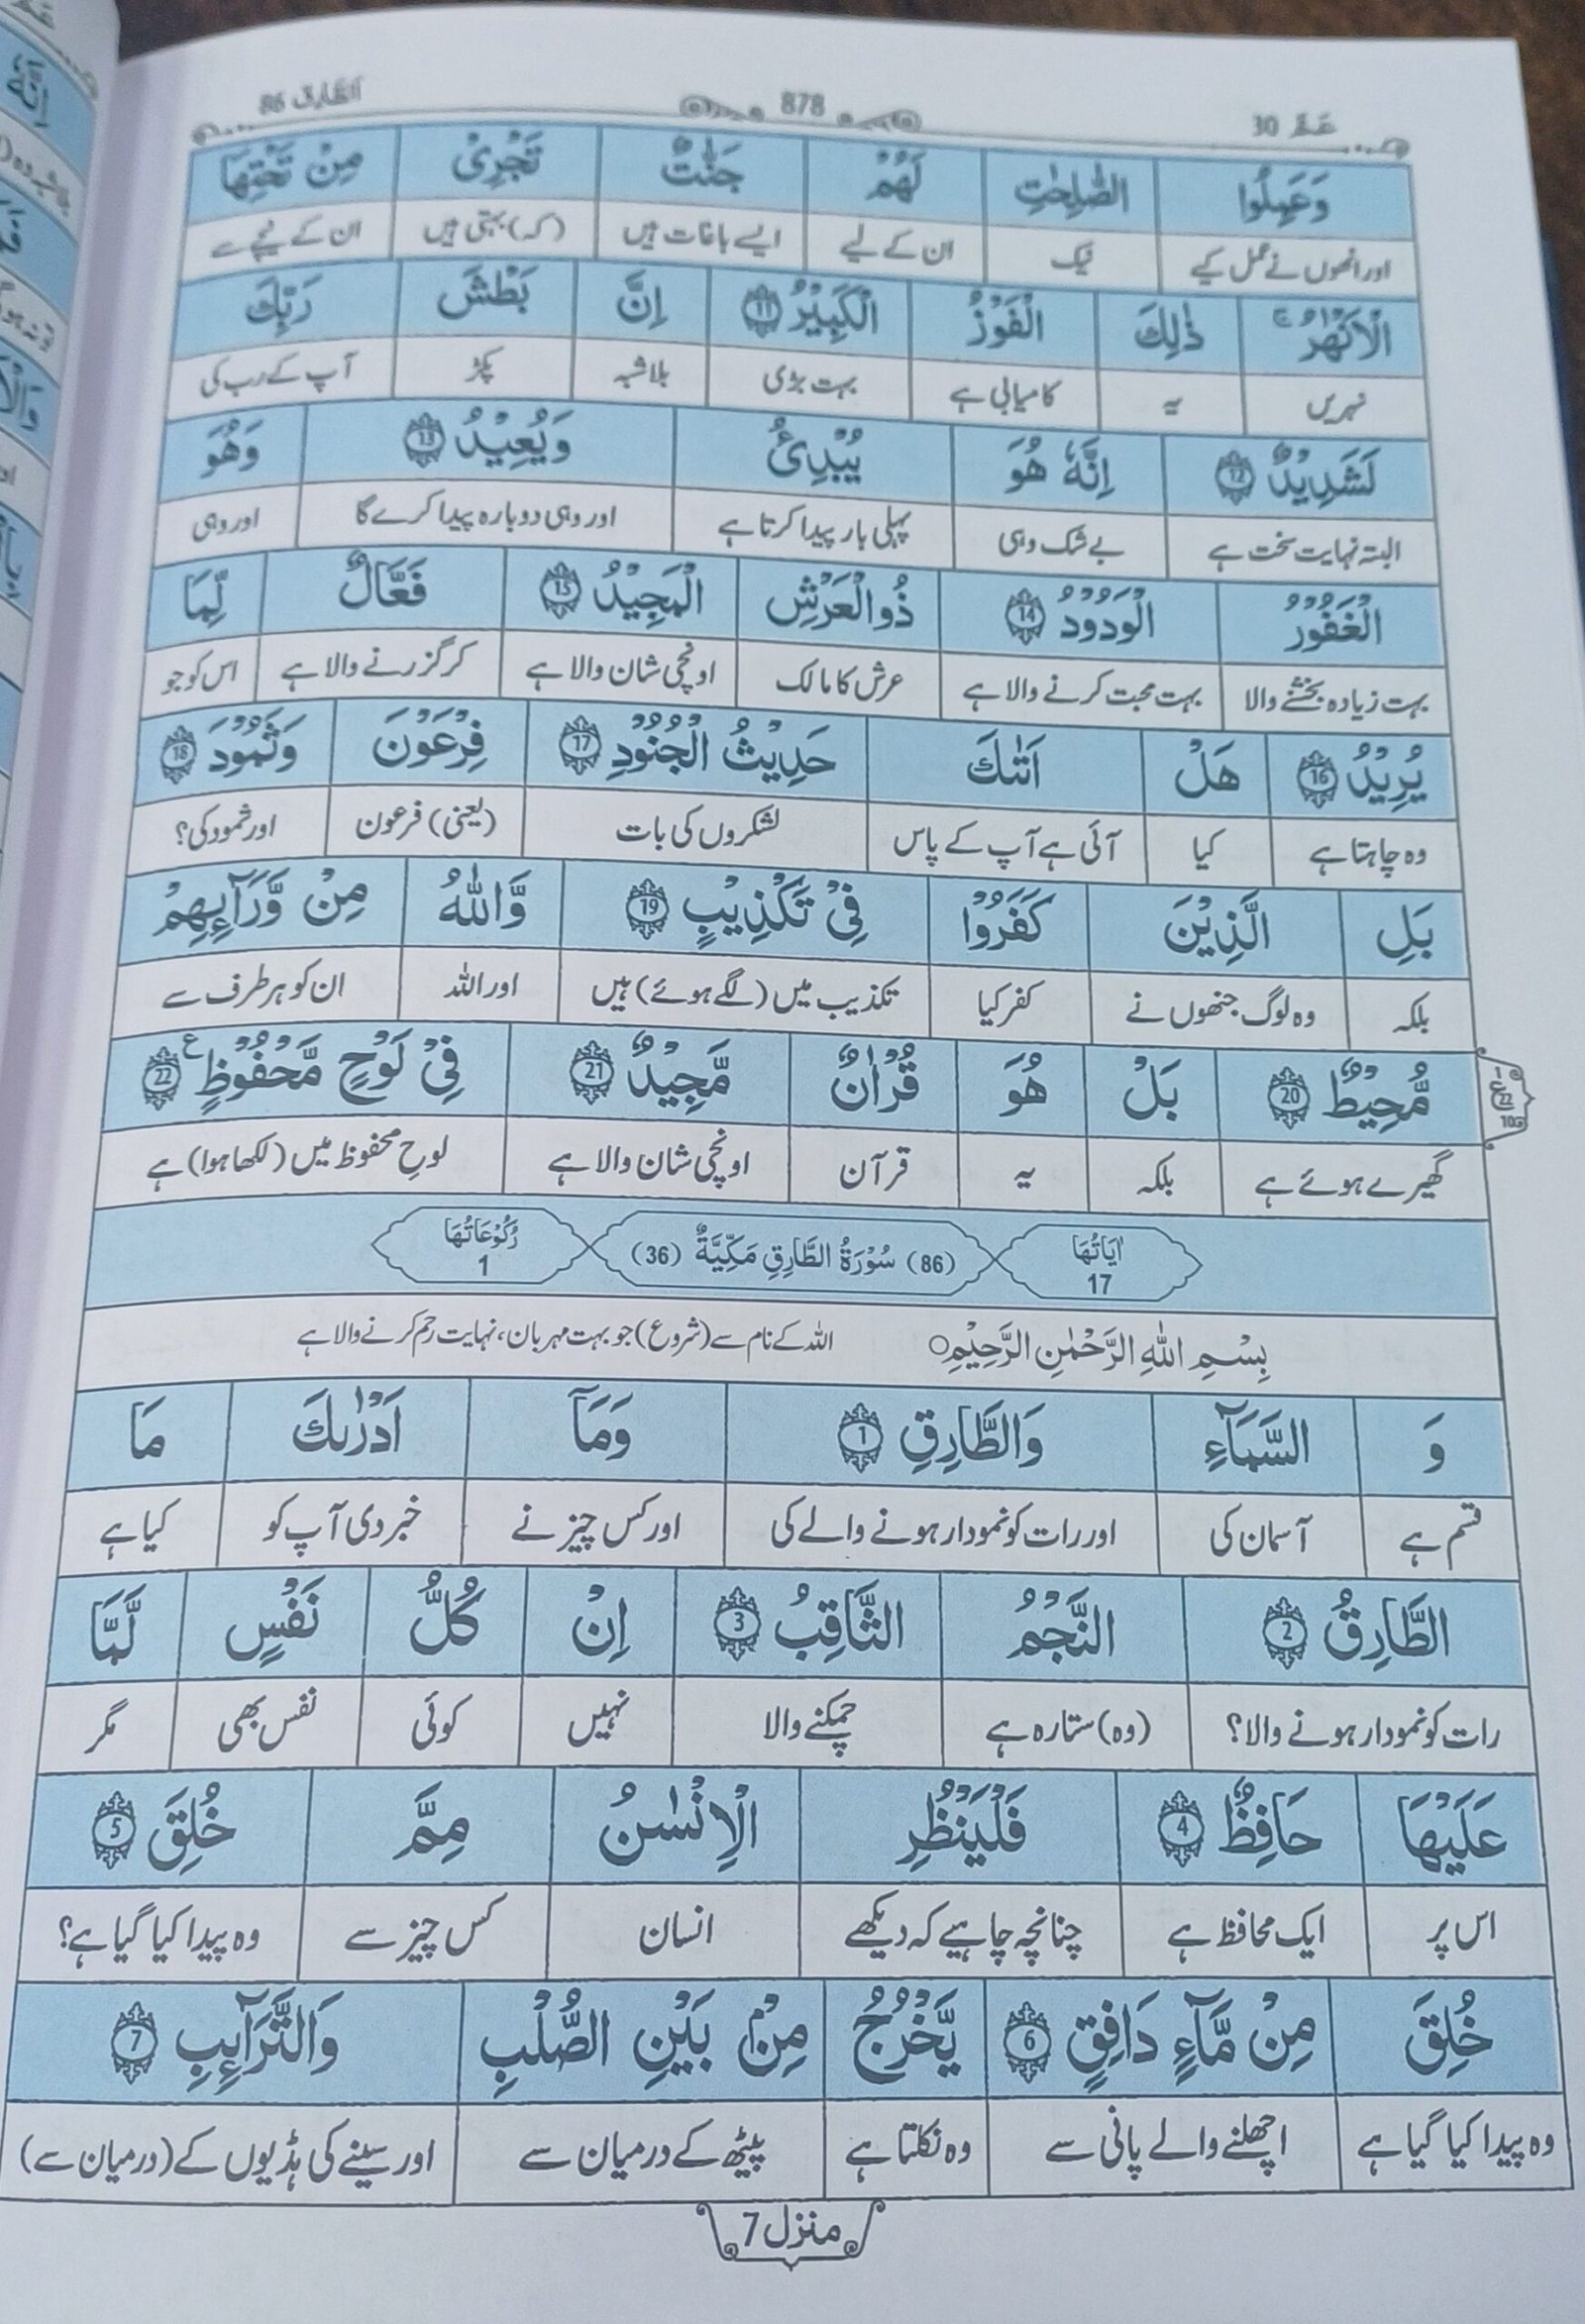 عَمَّ 30 878 اَلطَّارِق 86
وَعَمِلُوا الصّٰلِحٰتِ لَهُمْ جَنّٰتٌ تَجْرِيْ مِنْ تَحْتِهَا
اور انھوں نے عمل کیے نیک ان کے لیے ایسے باغات ہیں (کہ) بہتی ہیں ان کے نیچے سے
الْاَنْهٰرُ ۚ ذٰلِكَ الْفَوْزُ الْكَبِيْرُ 11 اِنَّ بَطْشَ رَبِّكَ
نہریں یہ کامیابی ہے بہت بڑی بلاشبہ پکڑ آپ کے رب کی
لَشَدِيْدٌ 12 اِنَّهٗ هُوَ يُبْدِئُ وَيُعِيْدُ 13 وَهُوَ
البتہ نہایت سخت ہے بے شک وہی پہلی بار پیدا کرتا ہے اور وہی دوبارہ پیدا کرے گا اور وہی
الْغَفُوْرُ الْوَدُوْدُ 14 ذُو الْعَرْشِ الْمَجِيْدُ 15 فَعَّالٌ لِّمَا
بہت زیادہ بخشنے والا بہت محبت کرنے والا ہے عرش کا مالک اونچی شان والا ہے کر گزرنے والا ہے اس کو جو
يُرِيْدُ 16 هَلْ اَتٰىكَ حَدِيْثُ الْجُنُوْدِ 17 فِرْعَوْنَ وَثَمُوْدَ 18
وہ چاہتا ہے کیا آئی ہے آپ کے پاس لشکروں کی بات (یعنی) فرعون اور ثمود کی؟
بَلِ الَّذِيْنَ كَفَرُوْا فِيْ تَكْذِيْبٍ 19 وَّاللّٰهُ مِنْ وَّرَآىِٕهِمْ
بلکہ وہ لوگ جنھوں نے کفر کیا تکذیب میں (لگے ہوئے) ہیں اور اللہ ان کو ہر طرف سے
مُّحِيْطٌ 20 بَلْ هُوَ قُرْاٰنٌ مَّجِيْدٌ 21 فِيْ لَوْحٍ مَّحْفُوْظٍ 22 ع
گھیرے ہوئے ہے بلکہ یہ قرآن اونچی شان والا ہے لوحِ محفوظ میں (لکھا ہوا) ہے
1 ع 22 10
اٰيَاتُهَا 17 (86) سُوْرَةُ الطَّارِقِ مَكِّيَّةٌ (36) رُكُوْعَاتُهَا 1
بِسْمِ اللّٰهِ الرَّحْمٰنِ الرَّحِيْمِ○ اللہ کے نام سے (شروع) جو بہت مہربان، نہایت رحم کرنے والا ہے
وَ السَّمَآءِ وَالطَّارِقِ 1 وَمَآ اَدْرٰىكَ مَا
قسم ہے آسمان کی اور رات کو نمودار ہونے والے کی اور کس چیز نے خبر دی آپ کو کیا ہے
الطَّارِقُ 2 النَّجْمُ الثَّاقِبُ 3 اِنْ كُلُّ نَفْسٍ لَّمَّا
رات کو نمودار ہونے والا؟ (وہ) ستارہ ہے چمکنے والا نہیں کوئی نفس بھی مگر
عَلَيْهَا حَافِظٌ 4 فَلْيَنْظُرِ الْاِنْسٰنُ مِمَّ خُلِقَ 5
اس پر ایک محافظ ہے چنانچہ چاہیے کہ دیکھے انسان کس چیز سے وہ پیدا کیا گیا ہے؟
خُلِقَ مِنْ مَّآءٍ دَافِقٍ 6 يَّخْرُجُ مِنْۢ بَيْنِ الصُّلْبِ وَالتَّرَآىِٕبِ 7
وہ پیدا کیا گیا ہے اچھلنے والے پانی سے وہ نکلتا ہے پیٹھ کے درمیان سے اور سینے کی ہڈیوں کے (درمیان سے)
منزل 7